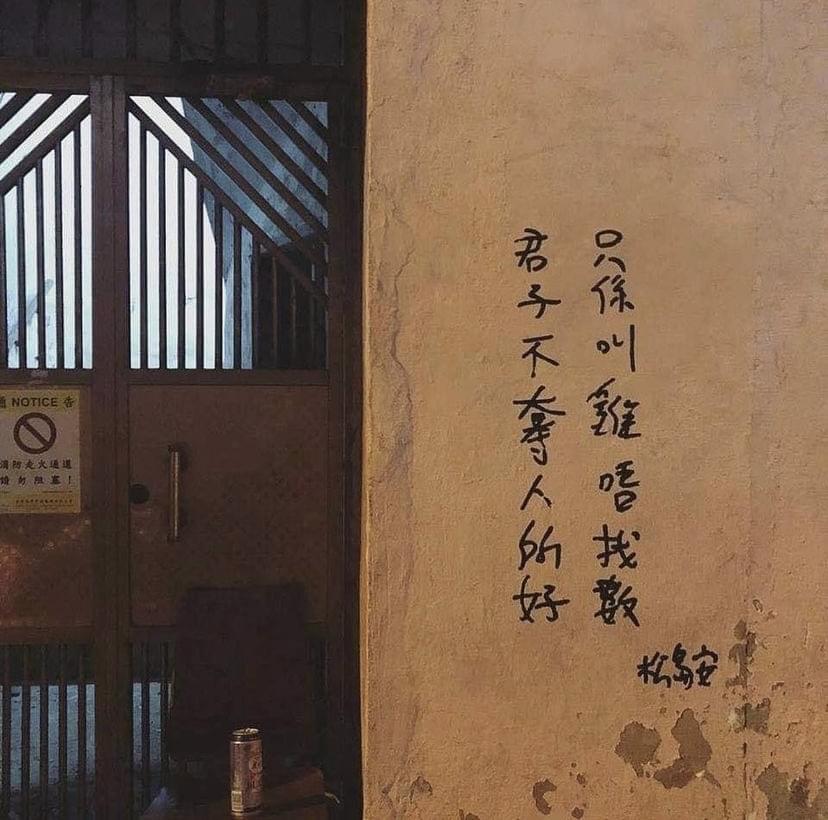 只係叫雞唔找數
君子不奪人所好
松島安
通 NOTICE 告
消防走火通道
請勿阻塞！